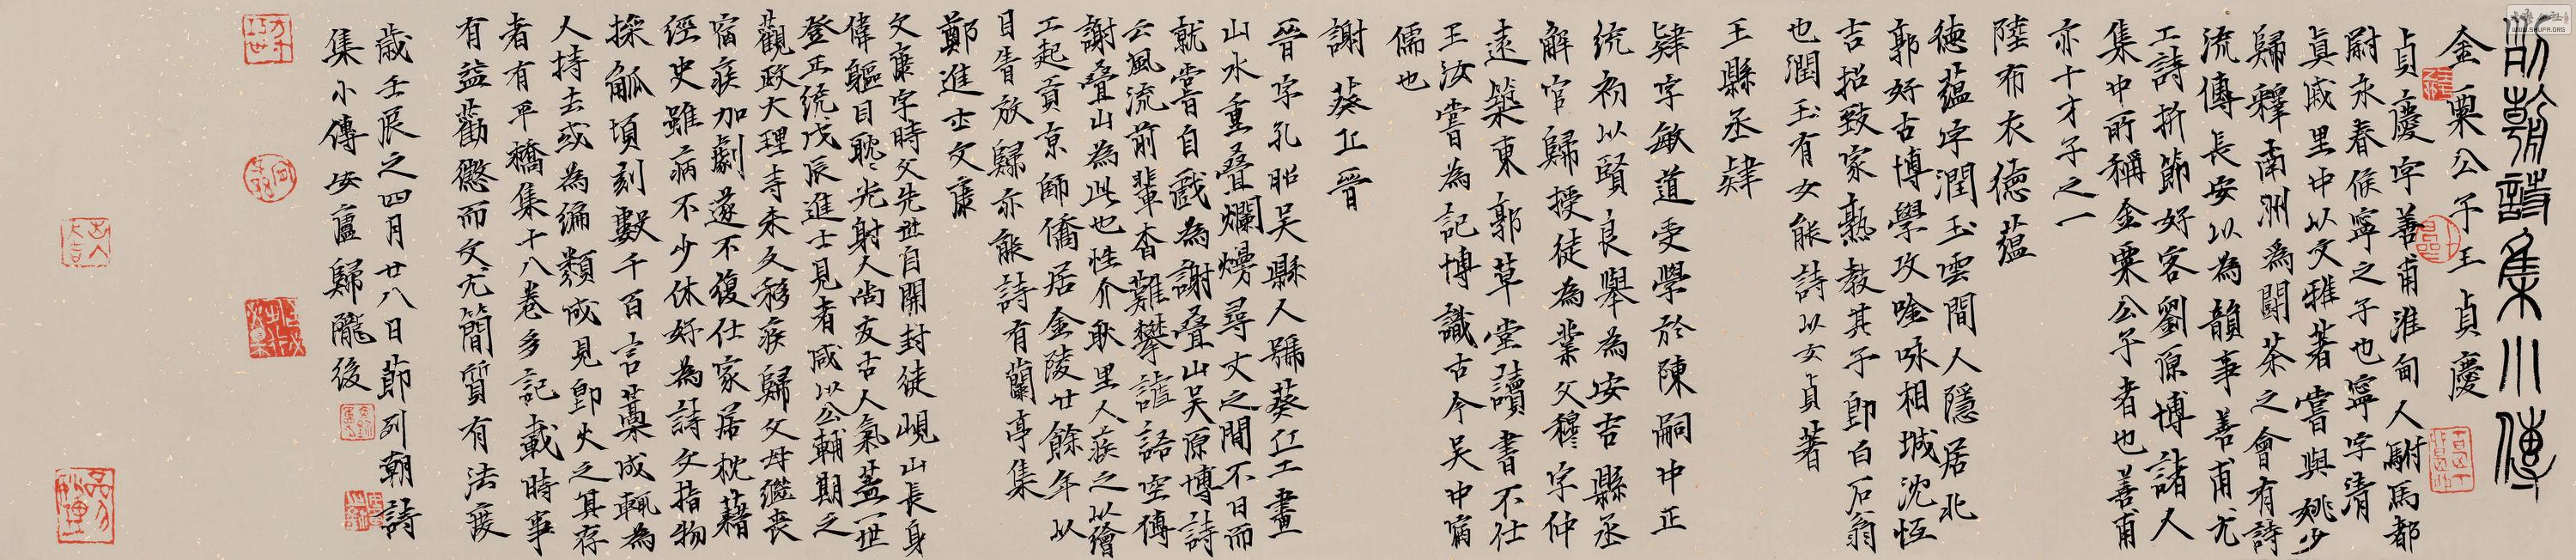 列朝詩集小傳
金粟公子王貞慶
貞慶字善甫淮甸人駙馬都
尉永春侯寧之子也寧字清
真戚里中以文雅著嘗與姚少
歸釋南洲為鬪茶之會有詩
流傳長安以為韻事善甫尤
工詩折節好客劉原博諸人
集中所稱金粟公子者也善甫
亦十才子之一
陸布衣德蘊
德蘊字潤玉雲間人隱居北
郭好古博學攻唫咏相城沈恆
吉招致家熟教其子即白石翁
也潤玉有女能詩以女貞著
王縣丞肄
肄字敏道受學於陳嗣中正
统初以賢良舉為安吉縣丞
解官歸授徒為業父穆字仲
遠築東郭草堂讀書不仕
王汝嘗為記博識古今吴中宿
儒也
謝葵丘晉
晉字孔昭吴縣人號葵丘工畫
山水重叠爛熳尋丈之間不日而
就嘗自戲為謝叠山吴原博詩
云風流前輩杳難攀諠語空傳
謝叠山為此也性介耿里人疾之以繪
工起貢京師僑居金陵廿餘年以
目眚放歸亦能詩有蘭亭集
鄭進士文康
文康字時父先世自開封徙峴山長身
偉軀目耽々光射人尚友古人氣蓋一世
登正统戊辰進士見者咸以公輔期之
觀政大理寺未久移疾歸父母繼喪
宿疾加劇遂不復仕家居枕藉
經史雖病不少休好為詩文指物
採觚頃刻數千百言藁成輒為
人持去或為编類成見即火之其存
者有平橋集十八卷多記載時事
有益勸懲而文尤簡質有法度
歲壬辰之四月廿八日節列朝詩
集小傳安廬歸隴後